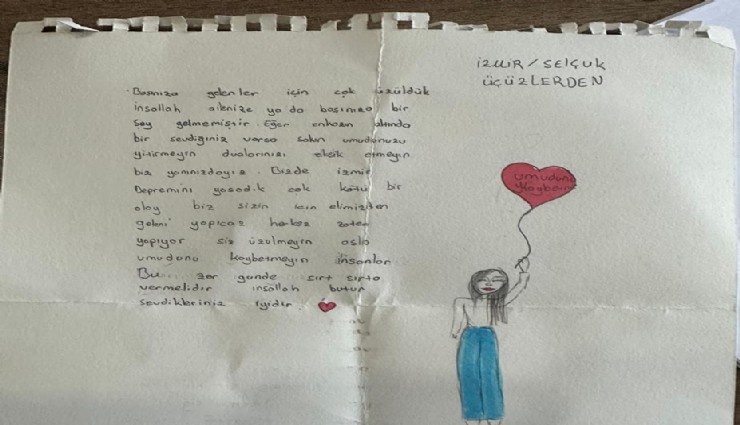 Başınıza gelenler için çok üzüldük
inşallah ailenize ya da başınıza bir
şey gelmemiştir Eğer enkazın altında
bir sevdiğiniz varsa sakın umudunuzu
yitirmeyin dualarınızı eksik etmeyin
biz yanınızdayız. Bizde izmir
Depremini yaşadık çok kötü bir
olay biz sizin için elimizden
geleni yapıcaz herkes zaten
yapıyor siz üzülmeyin asla
umudunu kaybetmeyin insanlar
Bu zor günde sırt sırta
vermelidir inşallah bütün
sevdikleriniz iyidir.
İZMİR/SELÇUK
ÜÇÜZLERDEN
umudunu